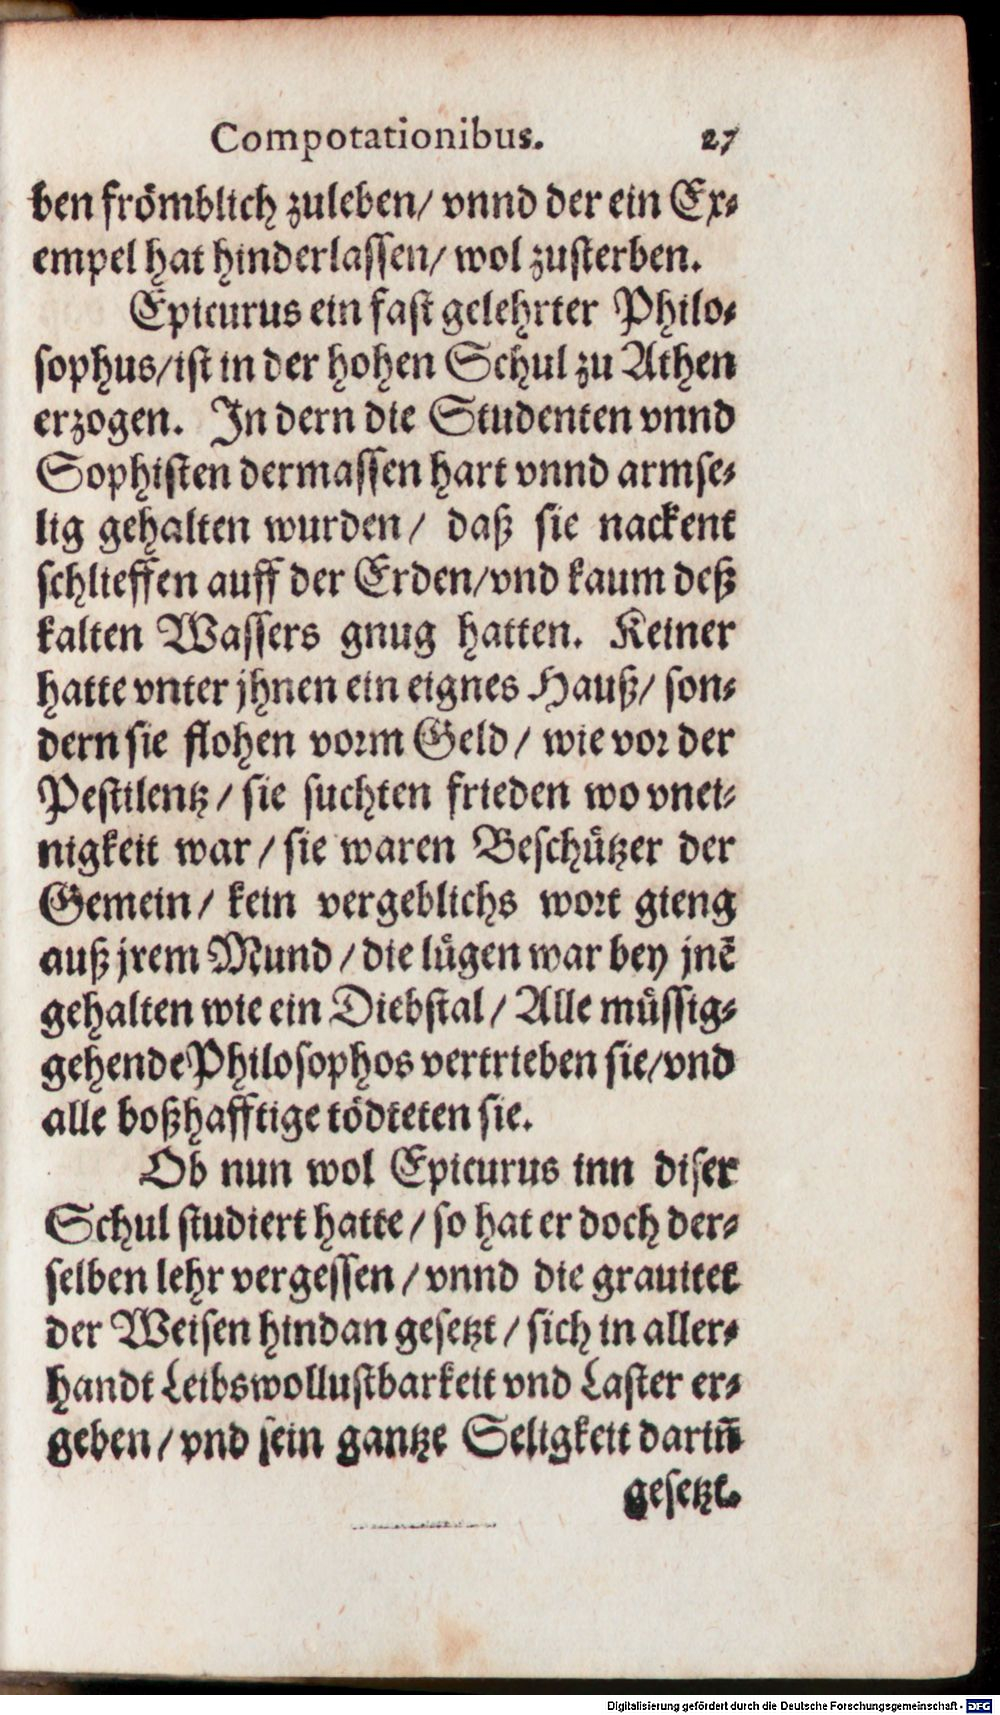 Compotationibus. 27
ben frömblich zuleben/ vnnd der ein Ex-
empel hat hinderlassen/ wol zusterben.
Epicurus ein fast gelehrter Philo-
sophus/ist in der hohen Schul zu Athen
erzogen. In dern die Studenten vnnd
Sophisten dermassen hart vnnd armse-
lig gehalten wurden/ daß sie nackent
schlieffen auff der Erden/vnd kaum deß
kalten Wassers gnug hatten. Keiner
hatte vnter jhnen ein eignes Hauß/ son-
dern sie flohen vorm Geld/ wie vor der
Pestilentz/ sie suchten frieden wo vnei-
nigkeit war/ sie waren Beschützer der
Gemein/ kein vergeblichs wort gieng
auß jrem Mund/ die lügen war bey jnē
gehalten wie ein Diebstal/ Alle müssig-
gehende Philosophos vertrieben sie/vnd
alle boßhafftige tödteten sie.
Ob nun wol Epicurus inn diser
Schul studiert hatte/ so hat er doch der-
selben lehr vergessen/ vnnd die grauitet
der Weisen hindan gesetzt/ sich in aller-
handt Leibswollustbarkeit vnd Laster er-
geben/ vnd sein gantze Seligkeit darin̄
gesetzt.
Digitalisierung gefördert durch die Deutsche Forschungsgemeinschaft - DFG